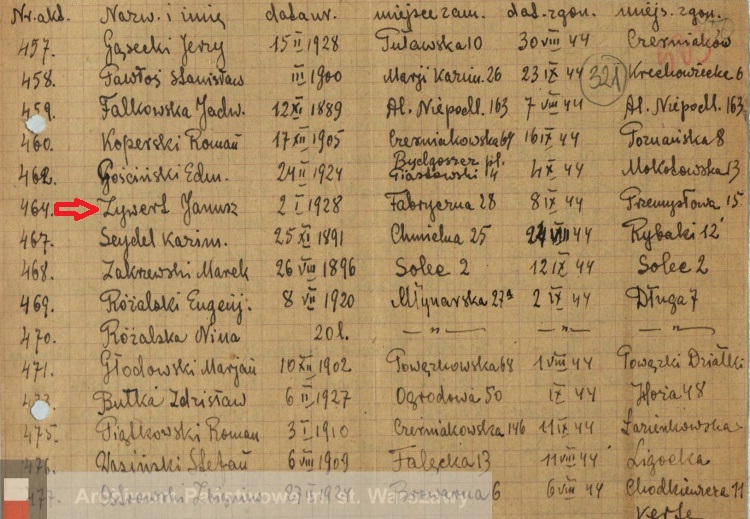 Nr. akt. Nazw. i imię data ur. miejsce zam. dat. zgon. miejs. zgon.
457. Gąsecki Jerzy 15 II 1928 Puławska 10 30 VIII 44 Czerniaków
458. Pawłoś Stanisław III 1900 Marji Kazim. 26 23 IX 44 321 Krechowiecka 6
459. Falkowska Jadw. 12 XI 1889 Al. Niepodl. 163 7 VIII 44 Al. Niepodl. 163
460. Koperski Roman 17 XII 1905 Czerniakowska 64 16 IX 44 Poznańska 8
462. Gościński Edm. 24 II 1924 Bydgoszcz pl.
Piastowski 14 4 IX 44 Mokotowska 13
464. Zywert Janusz 2 I 1928 Fabryczna 28 8 IX 44 Przemysłowa 15
467. Seydel Kazim. 25 XI 1891 Chmielna 25 24 VIII 44 Rybaki 12
468. Zakrzewski Marek 26 VIII 1896 Solec 2 12 IX 44 Solec 2
469. Różalski Eugenj. 8 VII 1920 Młynarska 27a 2 IX 44 Długa 7
470. Różalska Nina 20 l. — „ — — „ — — „ —
471. Głodowski Marjan 10 XII 1902 Powązkowska 64 1 VIII 44 Powązki Działki
473. Butka Zdzisław 6 II 1927 Ogrodowa 50 IX 44 Hoża 48
475. Piątkowski Roman 3 I 1910 Czerniakowska 146 11 IX 44 Łazienkowska
476. Wasiński Stefan 6 VIII 1909 Falęcka 13 11 VIII 44 Ligocka
477. 1924 Browarna 6 6 VIII 44 Chodkiewicza 11
Archiwum Państwowe m. st. Warszawy
verte